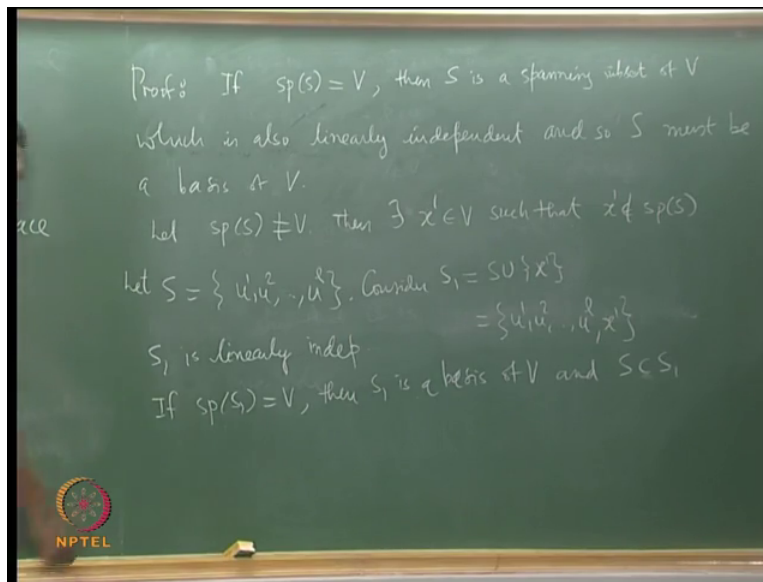 Proof: If sp(S) = V, then S is a spanning subset of V
which is also linearly independent and so S must be
a basis of V.
ace
Let sp(S) ≠ V. Then ∃ x¹ ∈ V such that x¹ ∉ sp(S)
Let S = { u¹, u², .., uˡ }. Consider S₁ = S ∪ {x¹}
= {u¹, u², .., uˡ, x¹}
S₁ is linearly indep.
If sp(S₁) = V, then S₁ is a basis of V and S ⊂ S₁
NPTEL